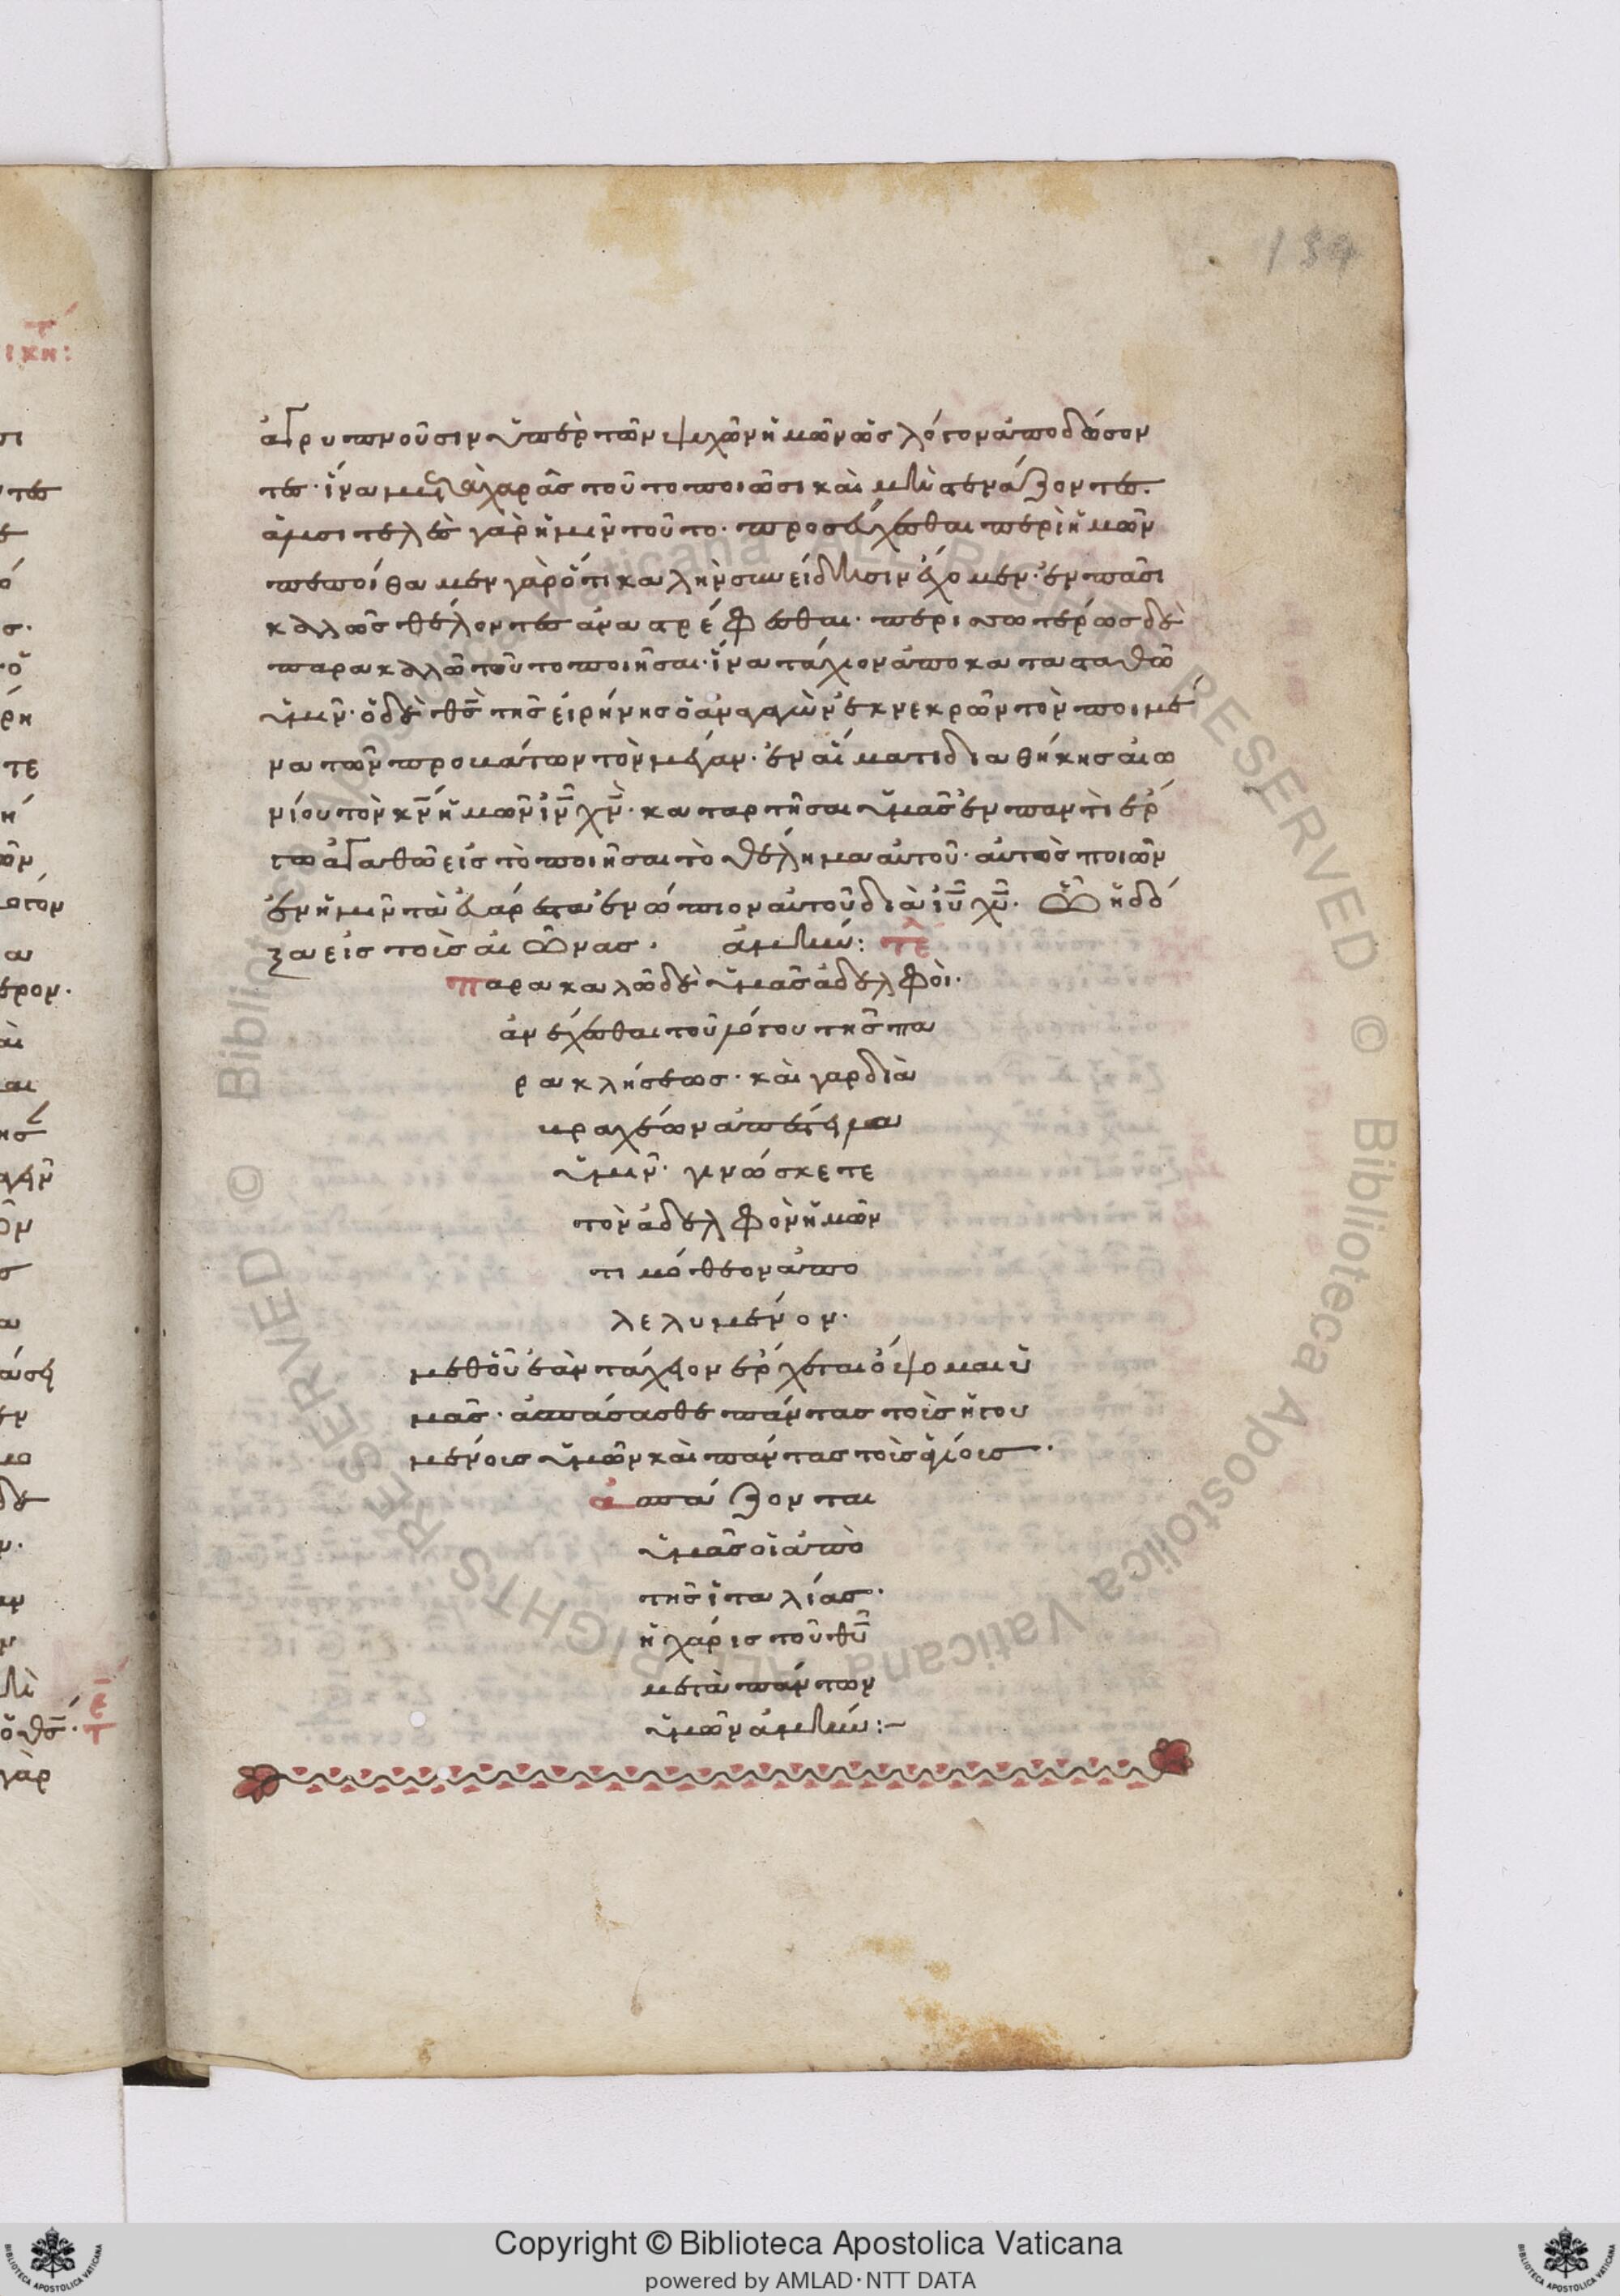 134
ἀγρυπνοῦσιν ὑπὲρ τῶν ψυχῶν ἡμῶν ὡς λόγον ἀποδώσον
τες· ἵνα μετὰ χαρᾶς τοῦτο ποιῶσι καὶ μὴ στενάζοντες.
ἀλυσιτελὲς γὰρ ἡμῖν τοῦτο· προσεύχεσθαι περὶ ἡμῶν
πεποίθαμεν γὰρ ὅτι καλὴν συνείδησιν ἔχομεν· ἐν πᾶσι
καλλῶς θέλοντες ἀναστρέφεσθαι· περισσωτέρως δὲ
παρακαλλῶ τοῦτο ποιῆσαι· ἵνα τάχιον ἀποκατασταθῶ
ὑμῖν· ὁ δὲ θς τῆς εἰρήνης ὁ ἀναγαγὼν ἐκ νεκρῶν τὸν ποιμέ
να τῶν προβάτων τὸν μέγαν· ἐν αἵματι διαθήκης αἰω
νίου τὸν κν ἡμῶν ιν χν· καταρτῆσαι ὑμᾶς ἐν παντὶ ἔρ
γω ἀγαθῶ εἰς τὸ ποιῆσαι τὸ θέλημα αὐτοῦ· αὐτὸς ποιῶν
ἐν ἡμῖν τὰ εὐάρεστα ἐνώπιον αὐτοῦ διὰ ιυ χυ. ὧ ἡ δό
ξα εἰς τοὺς αἰῶνας. ἀμήν: τε
Παρακαλῶ δὲ ὑμᾶς ἀδελφοὶ·
ἀνέχεσθαι τοῦ λόγου τῆς πα
ρακλήσεως· καὶ γαρ διὰ
βραχέων ἀπέστειλα
ὑμῖν· γινώσκετε
τὸν ἀδελφὸν ἡμῶν
τιμόθεον ἀπο
λελυμένον·
μεθοῦ ἐὰν τάχειον ἔρχεται ὄψομαι ὑ
μᾶς· ἀσπάσασθε πάντας τοὺς ἡγου
μένοις ὑμῶν καὶ πάντας τοὺς ἁγίοις·
ἀσπάζονται
ὑμᾶς οἱ ἀπὸ
τῆς ἰταλίας·
ἡ χάρις τοῦ θυ
μετὰ πάντων
ὑμῶν ἀμήν:–
© Biblioteca Apostolica Vaticana ALL RIGHTS RESERVED © Biblioteca Apostolica Vaticana ALL RIGHTS RESERVED
Copyright © Biblioteca Apostolica Vaticana
powered by AMLAD·NTT DATA